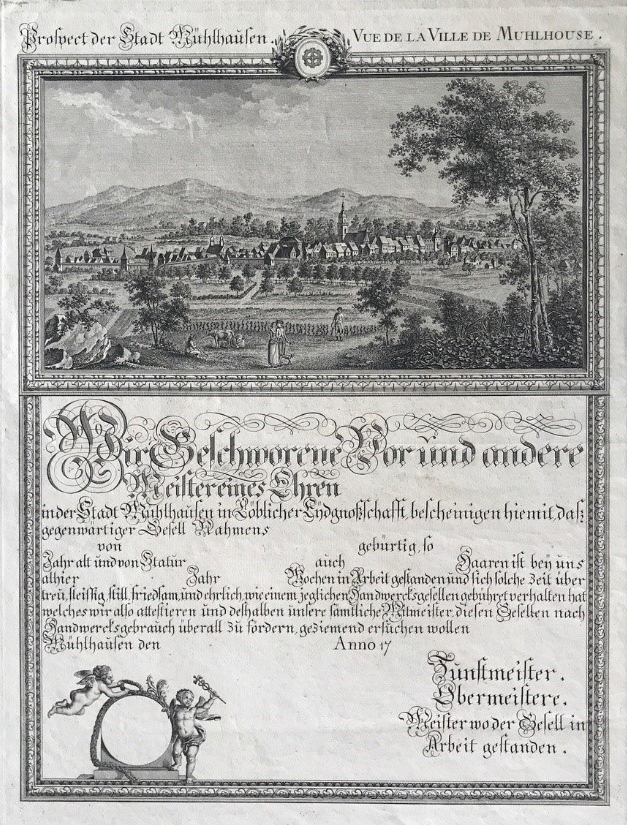 Prospect der Stadt Mühlhausen.
VUE DE LA VILLE DE MUHLHOUSE.
Wir Geschworene Vor und andere
Meister eines Ehren
in der Stadt Mühlhausen in Löblicher Eydgnoßschafft, bescheinigen hiemit, daß
gegenwärtiger Gesell Nahmens
von gebürtig, so
Jahr alt und von Statur auch Haaren ist beÿ uns
allhier Jahr Wochen in Arbeit gestanden und sich solche Zeit über
treü, fleißig, still, friedsam, und ehrlich, wie einem jeglichen Handwercksgesellen gebühret verhalten hat
welches wir also attestieren und deßhalben unsere sämtliche Mitmeister, diesen Gesellen nach
Handwercksgebrauch überall zu fördern, geziemend ersuchen wollen
Mühlhausen den Anno 17
Zunftmeister.
Obermeistere.
Meister wo der Gesell in
Arbeit gestanden.